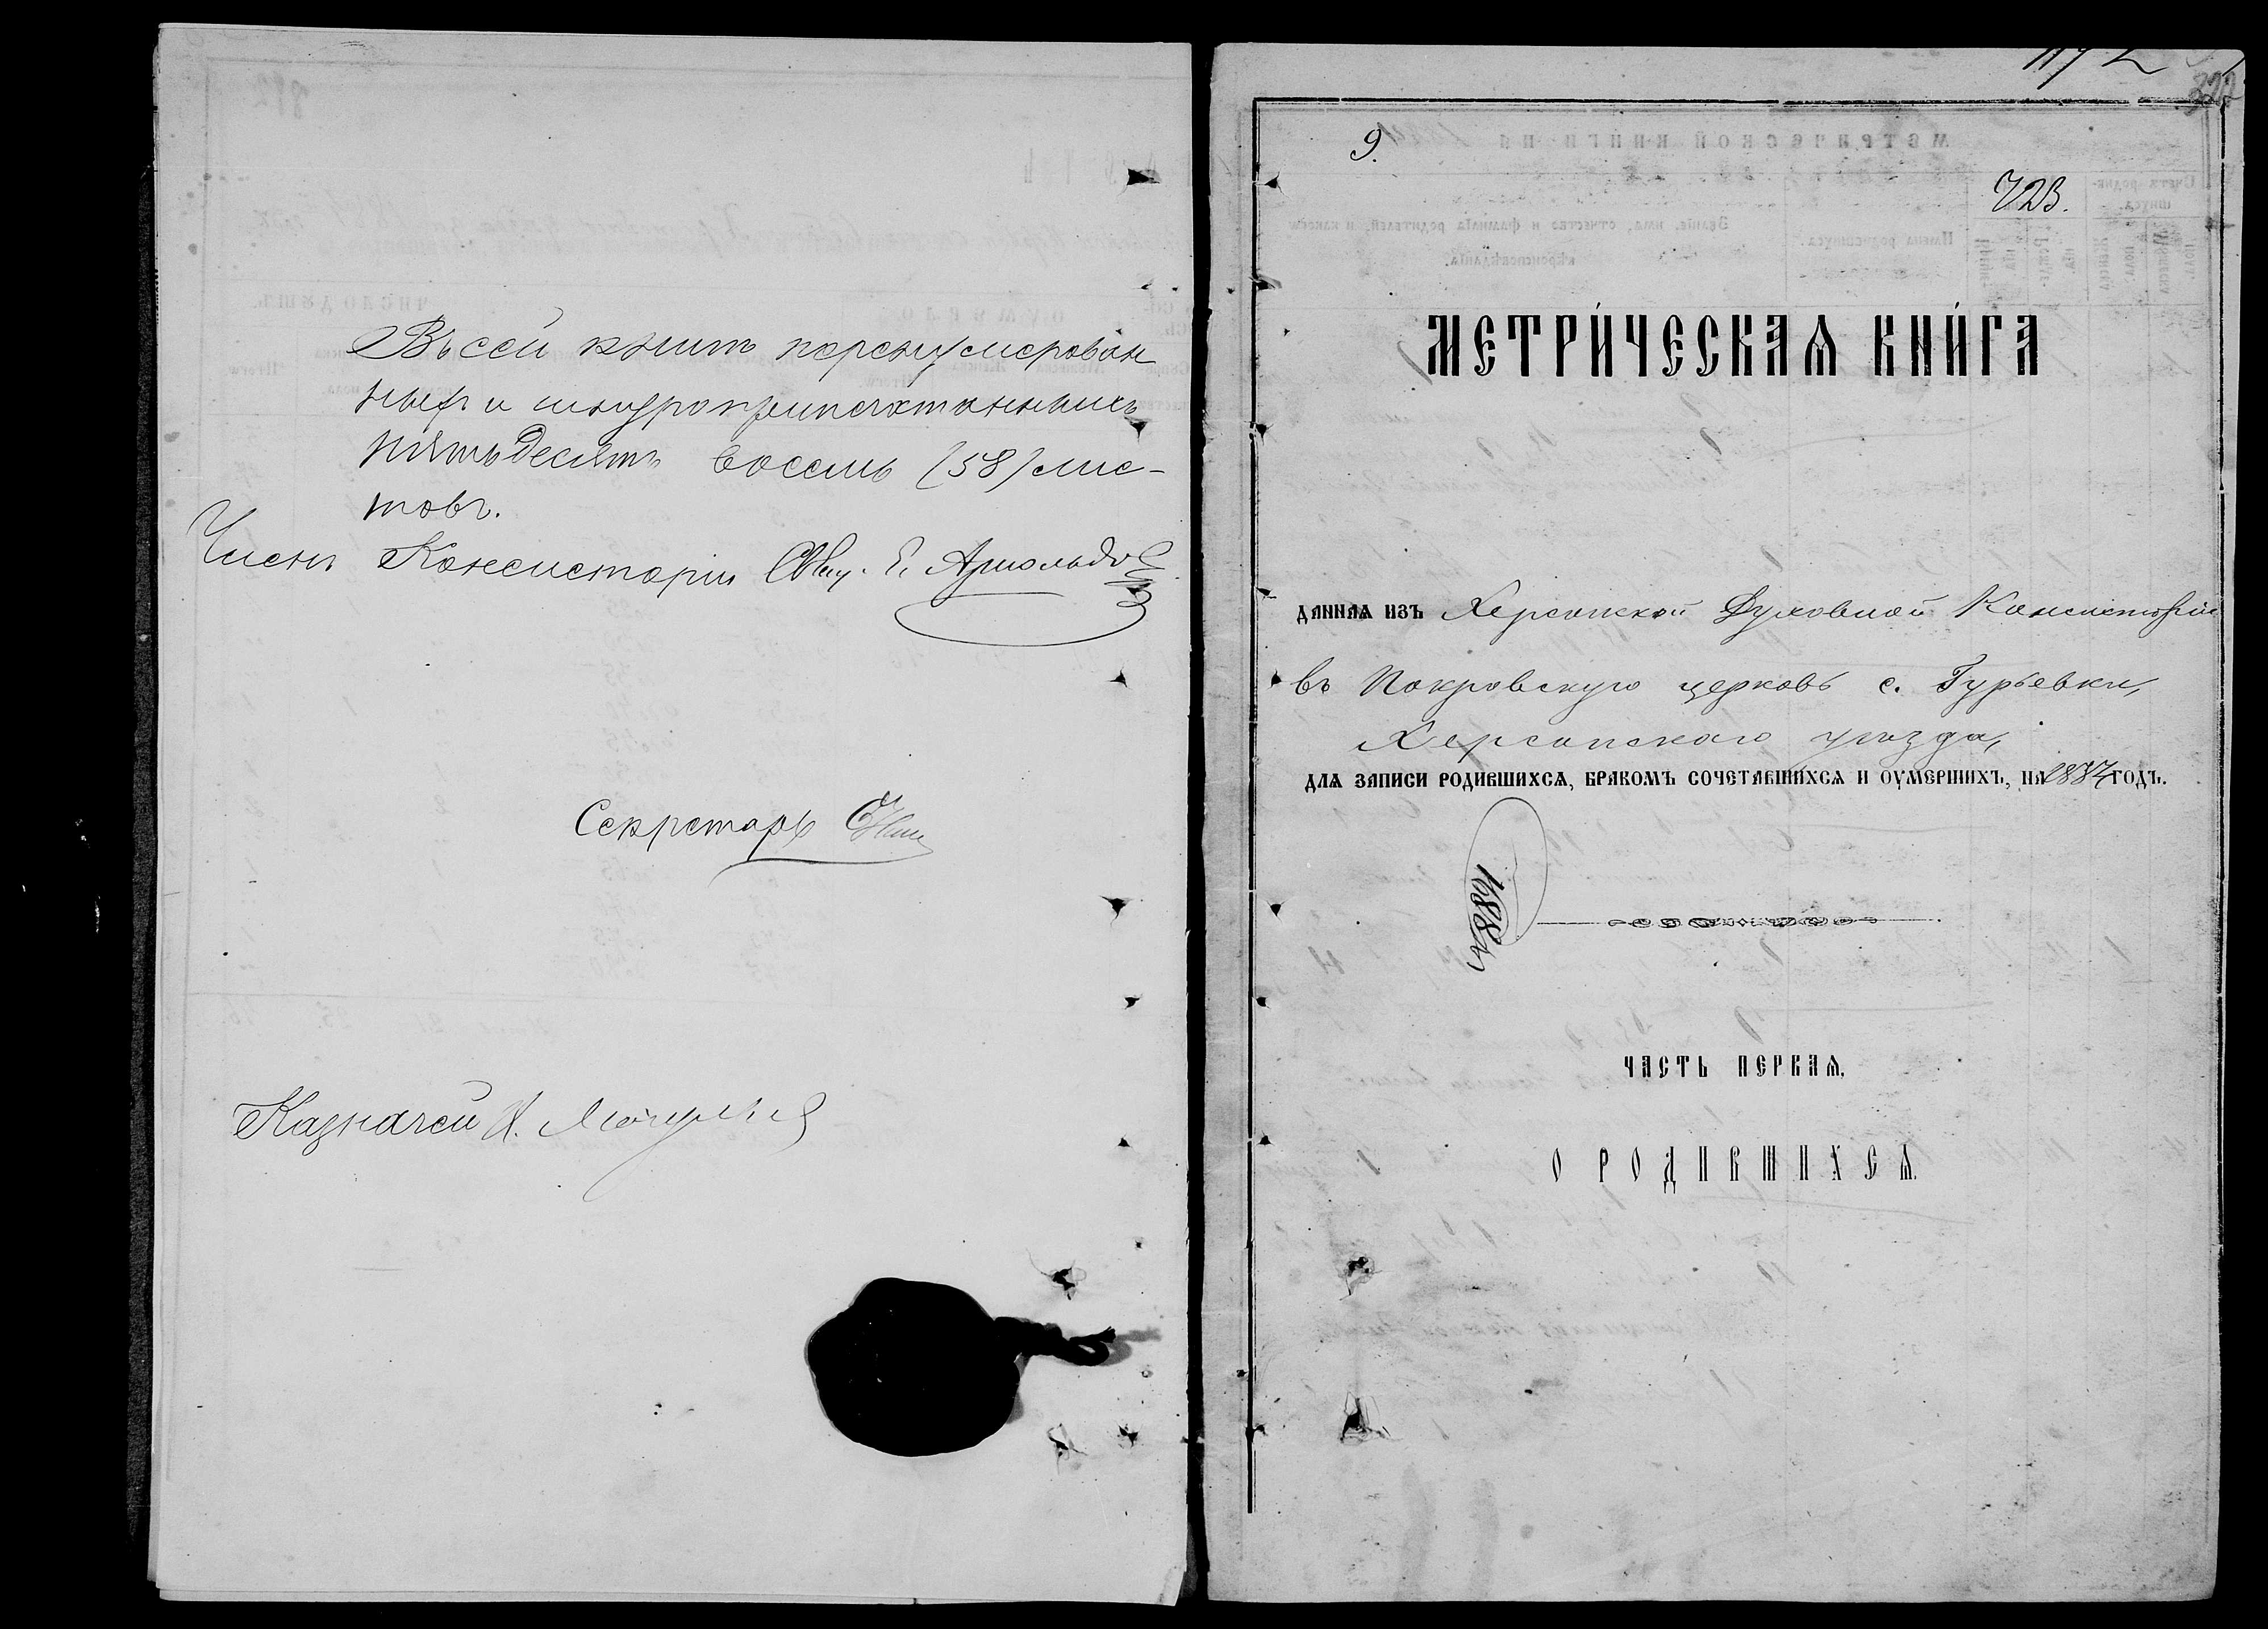 Въ сей книгѣ перенумерован
ныхъ и шнуроприпечатанныхъ
пятьдесятъ восемь (58) лис-
товъ.
Членъ Консисторіи Свящ. Е. Арнольдов
Секретарь
Казначей Н.
322
9.
МЕТРИ́ЧЕСКАѦ КНИ́ГА
ДАННАѦ ИЗЪ Херсонской Духовной Консисторіи
въ Покровскую церковь с. Гурьевки,
Херсонскаго уѣзда,
ДЛѦ ЗАПИСИ РОДИВШИХСѦ, БРАКОМЪ СОЧЕТАВШИХСѦ И ОУМЕРШИХЪ, НА 1887 ГОДЪ.
ЧАСТЬ ПЕРВАѦ.
О РОДИВШИХСѦ.